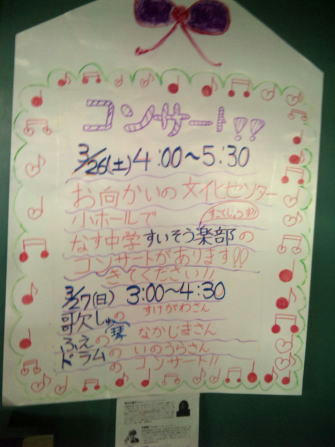 コンサート!!
3/26(土)4:00〜5:30
お向かいの文化センター
小ホールで
なす中学すいそう楽部の
コンサートがあります!!
きてください!!
3/27(日) 3:00〜4:30
歌欠しゅの すけがわさん
ふえの なかじまさん
ドラムの いのうらさん
の コンサート!!